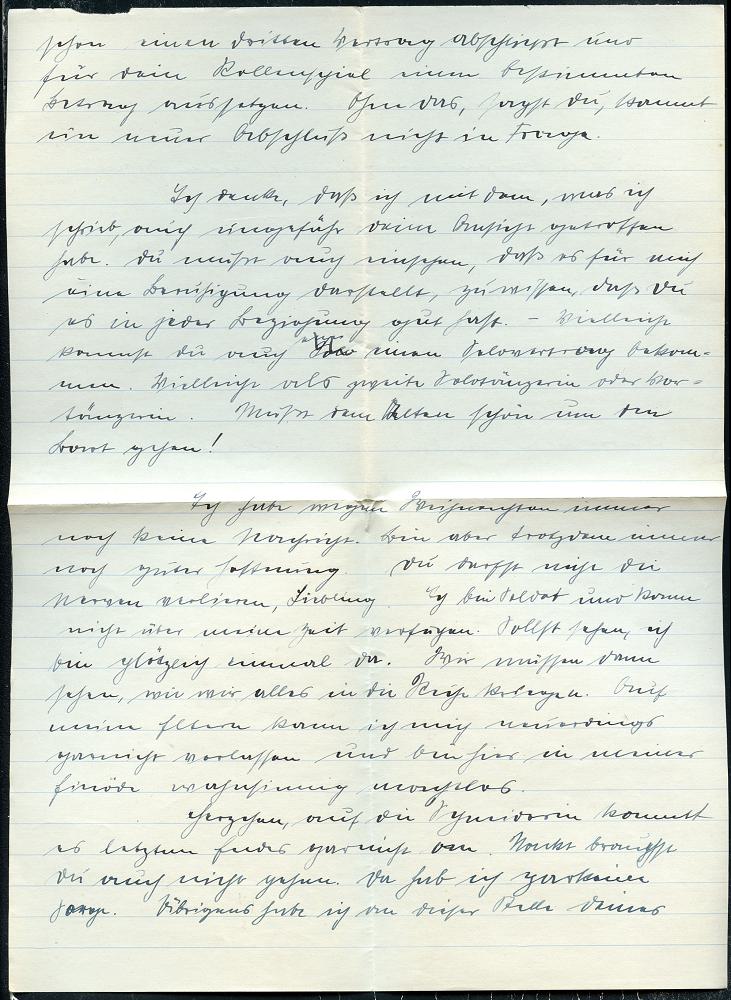 schon einen dritten Vertrag abschließt und
für dein Rollenspiel einen bestimmten
Betrag aussetzen. Ohne das, sagst du, kommt
ein neuer Abschluß nicht in Frage.
Ich denke, daß ich mit dem, was ich
schrieb, auch ungefähr deine Ansicht getroffen
habe. Du mußt auch einsehen, daß es für mich
eine Beruhigung darstellt, zu wissen, daß Du
es in jeder Beziehung gut hast. – Vielleicht
kannst du auch einen Solovertrag bekom=
men. Vielleicht als zweite Solotänzerin oder Vor=
tänzerin. Mußt dem Alten schön um den
Bart gehen!
Ich habe wegen Weihnachten immer
noch keine Nachricht. Bin aber trotzdem immer
noch guter Hoffnung. Du darfst nicht die
Nerven verlieren, Liebling. Ich bin Soldat und kann
nicht über meine Zeit verfügen. Sollst sehen, ich
bin plötzlich einmal da. Wir müssen dann
sehen, wie wir alles in die Reihe kriegen. Auf
meine Eltern kann ich mich neuerdings
garnicht verlassen und bin hier in meiner
Einöde wahnsinnig machtlos.
Herzchen, auf die Schneiderin kommt
es letzten Endes garnicht an. Nackt brauchst
du auch nicht gehen. Da hab ich gar keine
Sorge. Übrigens habe ich an dieser Stelle deines